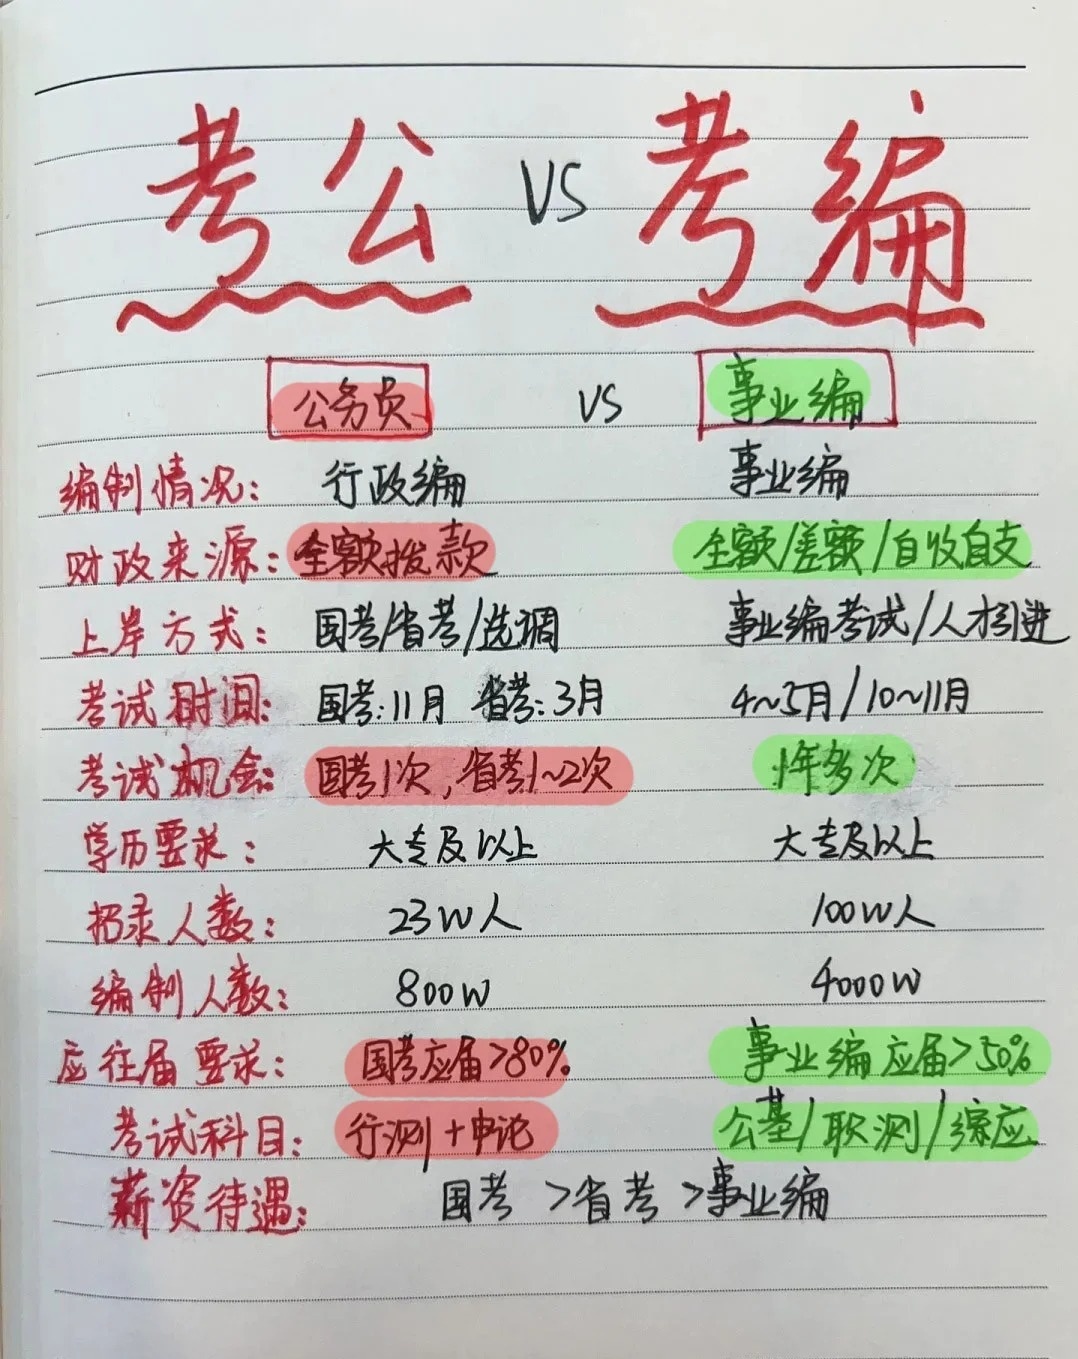 考公 VS 考编
公务员 VS 事业编
编制情况: 行政编 事业编
财政来源: 全额拨款 全额/差额/自收自支
上岸方式: 国考/省考/选调 事业编考试/人才引进
考试时间: 国考:11月 省考:3月 4~5月/10~11月
考试机会: 国考1次,省考1~2次 1年多次
学历要求: 大专及以上 大专及以上
招录人数: 23W人 100W人
编制人数: 800W 4000W
应往届要求: 国考应届>80% 事业编应届>50%
考试科目: 行测+申论 公基/职测/综应
薪资待遇: 国考>省考>事业编